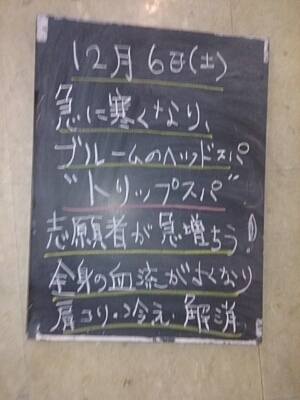 12月6日(土)
急に寒くなり、
ブルームのヘッドスパ
"トリップスパ"
志願者が急増ちう!
全身の血流がよくなり
肩コリ・冷え 解消